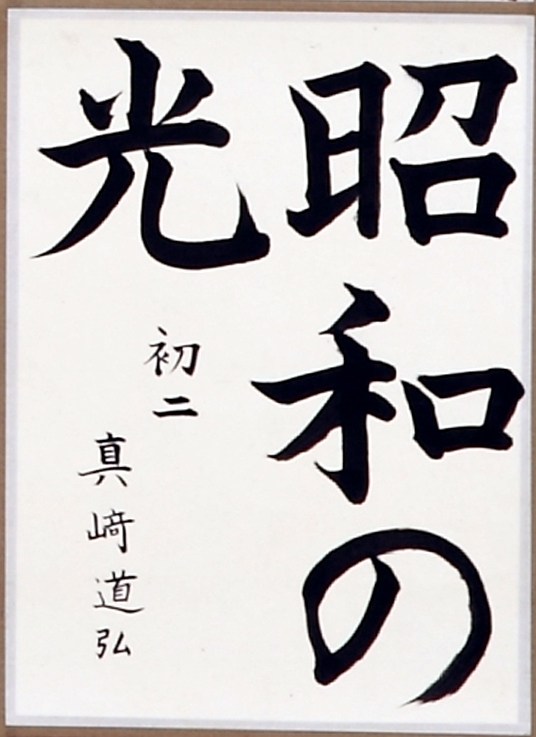 昭和の
光
初二
真﨑道弘